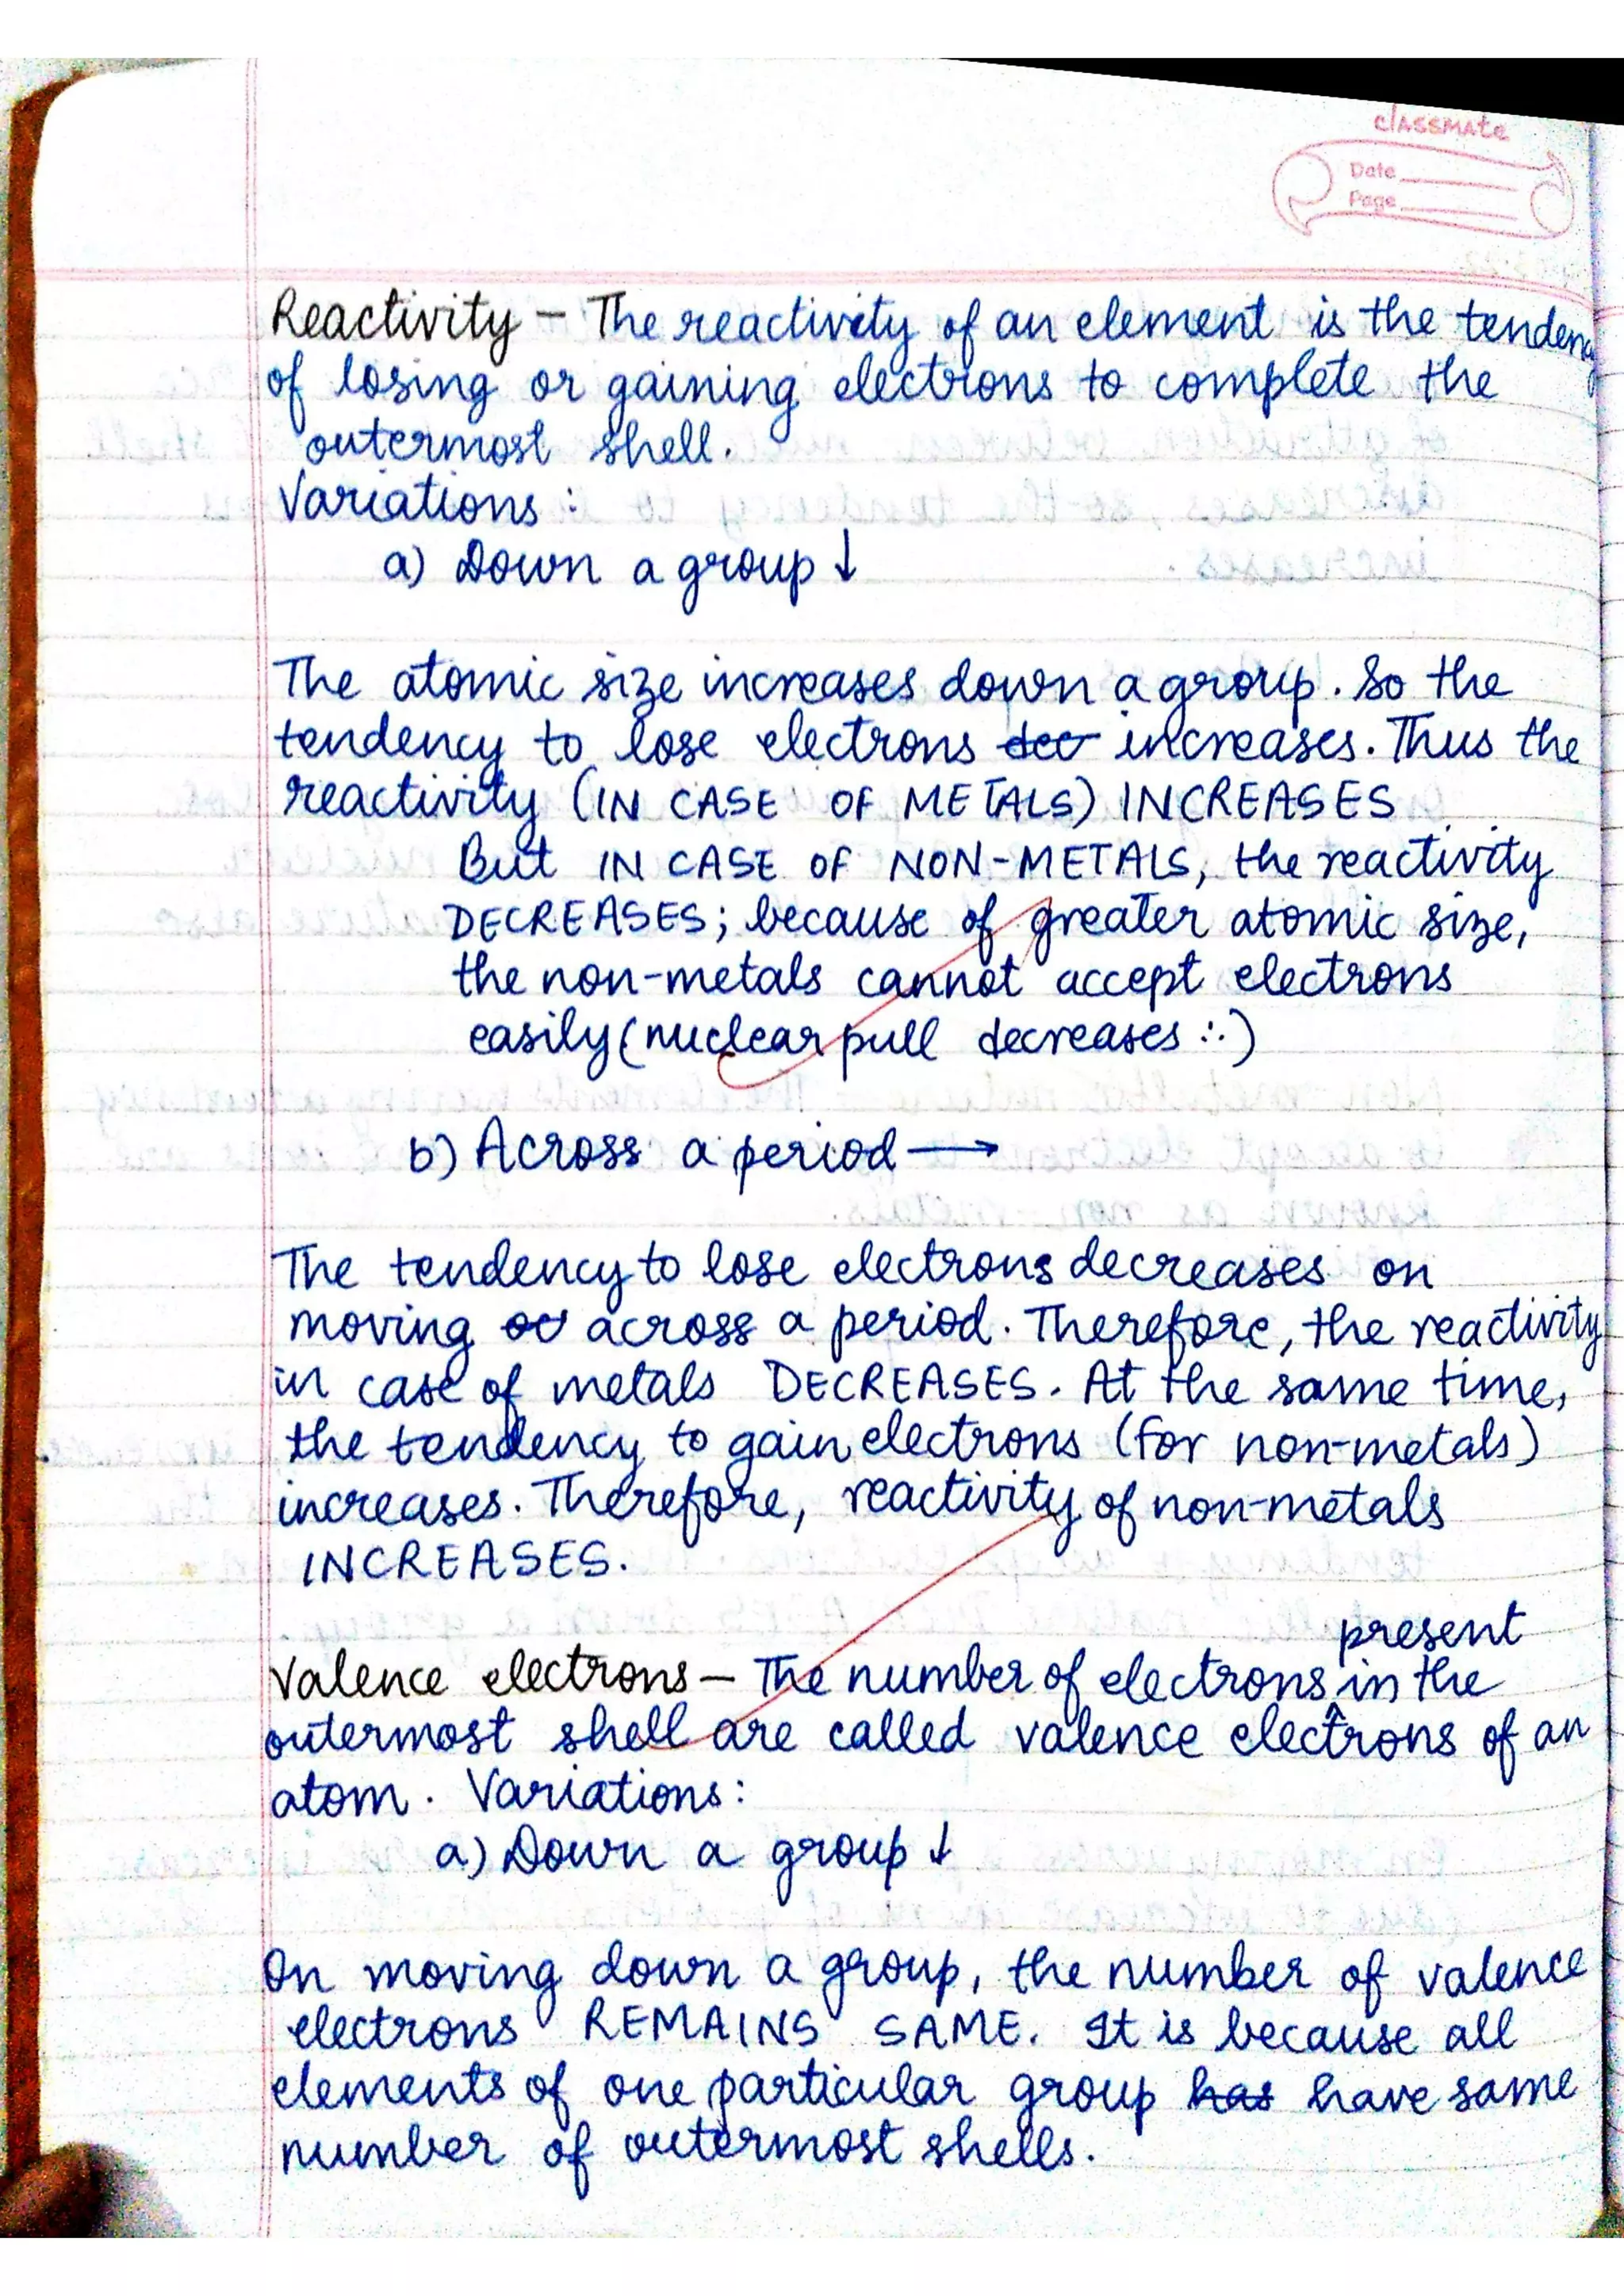 classmate
Date
Page
Reactivity – The reactivity of an element is the tendency
of losing or gaining electrons to complete the
outermost shell.
Variations :
a) Down a group ↓
The atomic size increases down a group. So the
tendency to lose electrons dec increases. Thus the
reactivity (IN CASE OF METALS) INCREASES
But IN CASE OF NON-METALS, the reactivity
DECREASES; because of greater atomic size,
the non-metals cannot accept electrons
easily (nuclear pull decreases ∵)
b) Across a period →
The tendency to lose electrons decreases on
moving across a period. Therefore, the reactivity
in case of metals DECREASES. At the same time,
the tendency to gain electrons (for non-metals)
increases. Therefore, reactivity of non-metals
INCREASES.
present
Valence electrons – The number of electrons in the
outermost shell are called valence electrons of an
atom. Variations:
a) Down a group ↓
On moving down a group, the number of valence
electrons REMAINS SAME. It is because all
elements of one particular group has have same
number of outermost shells.